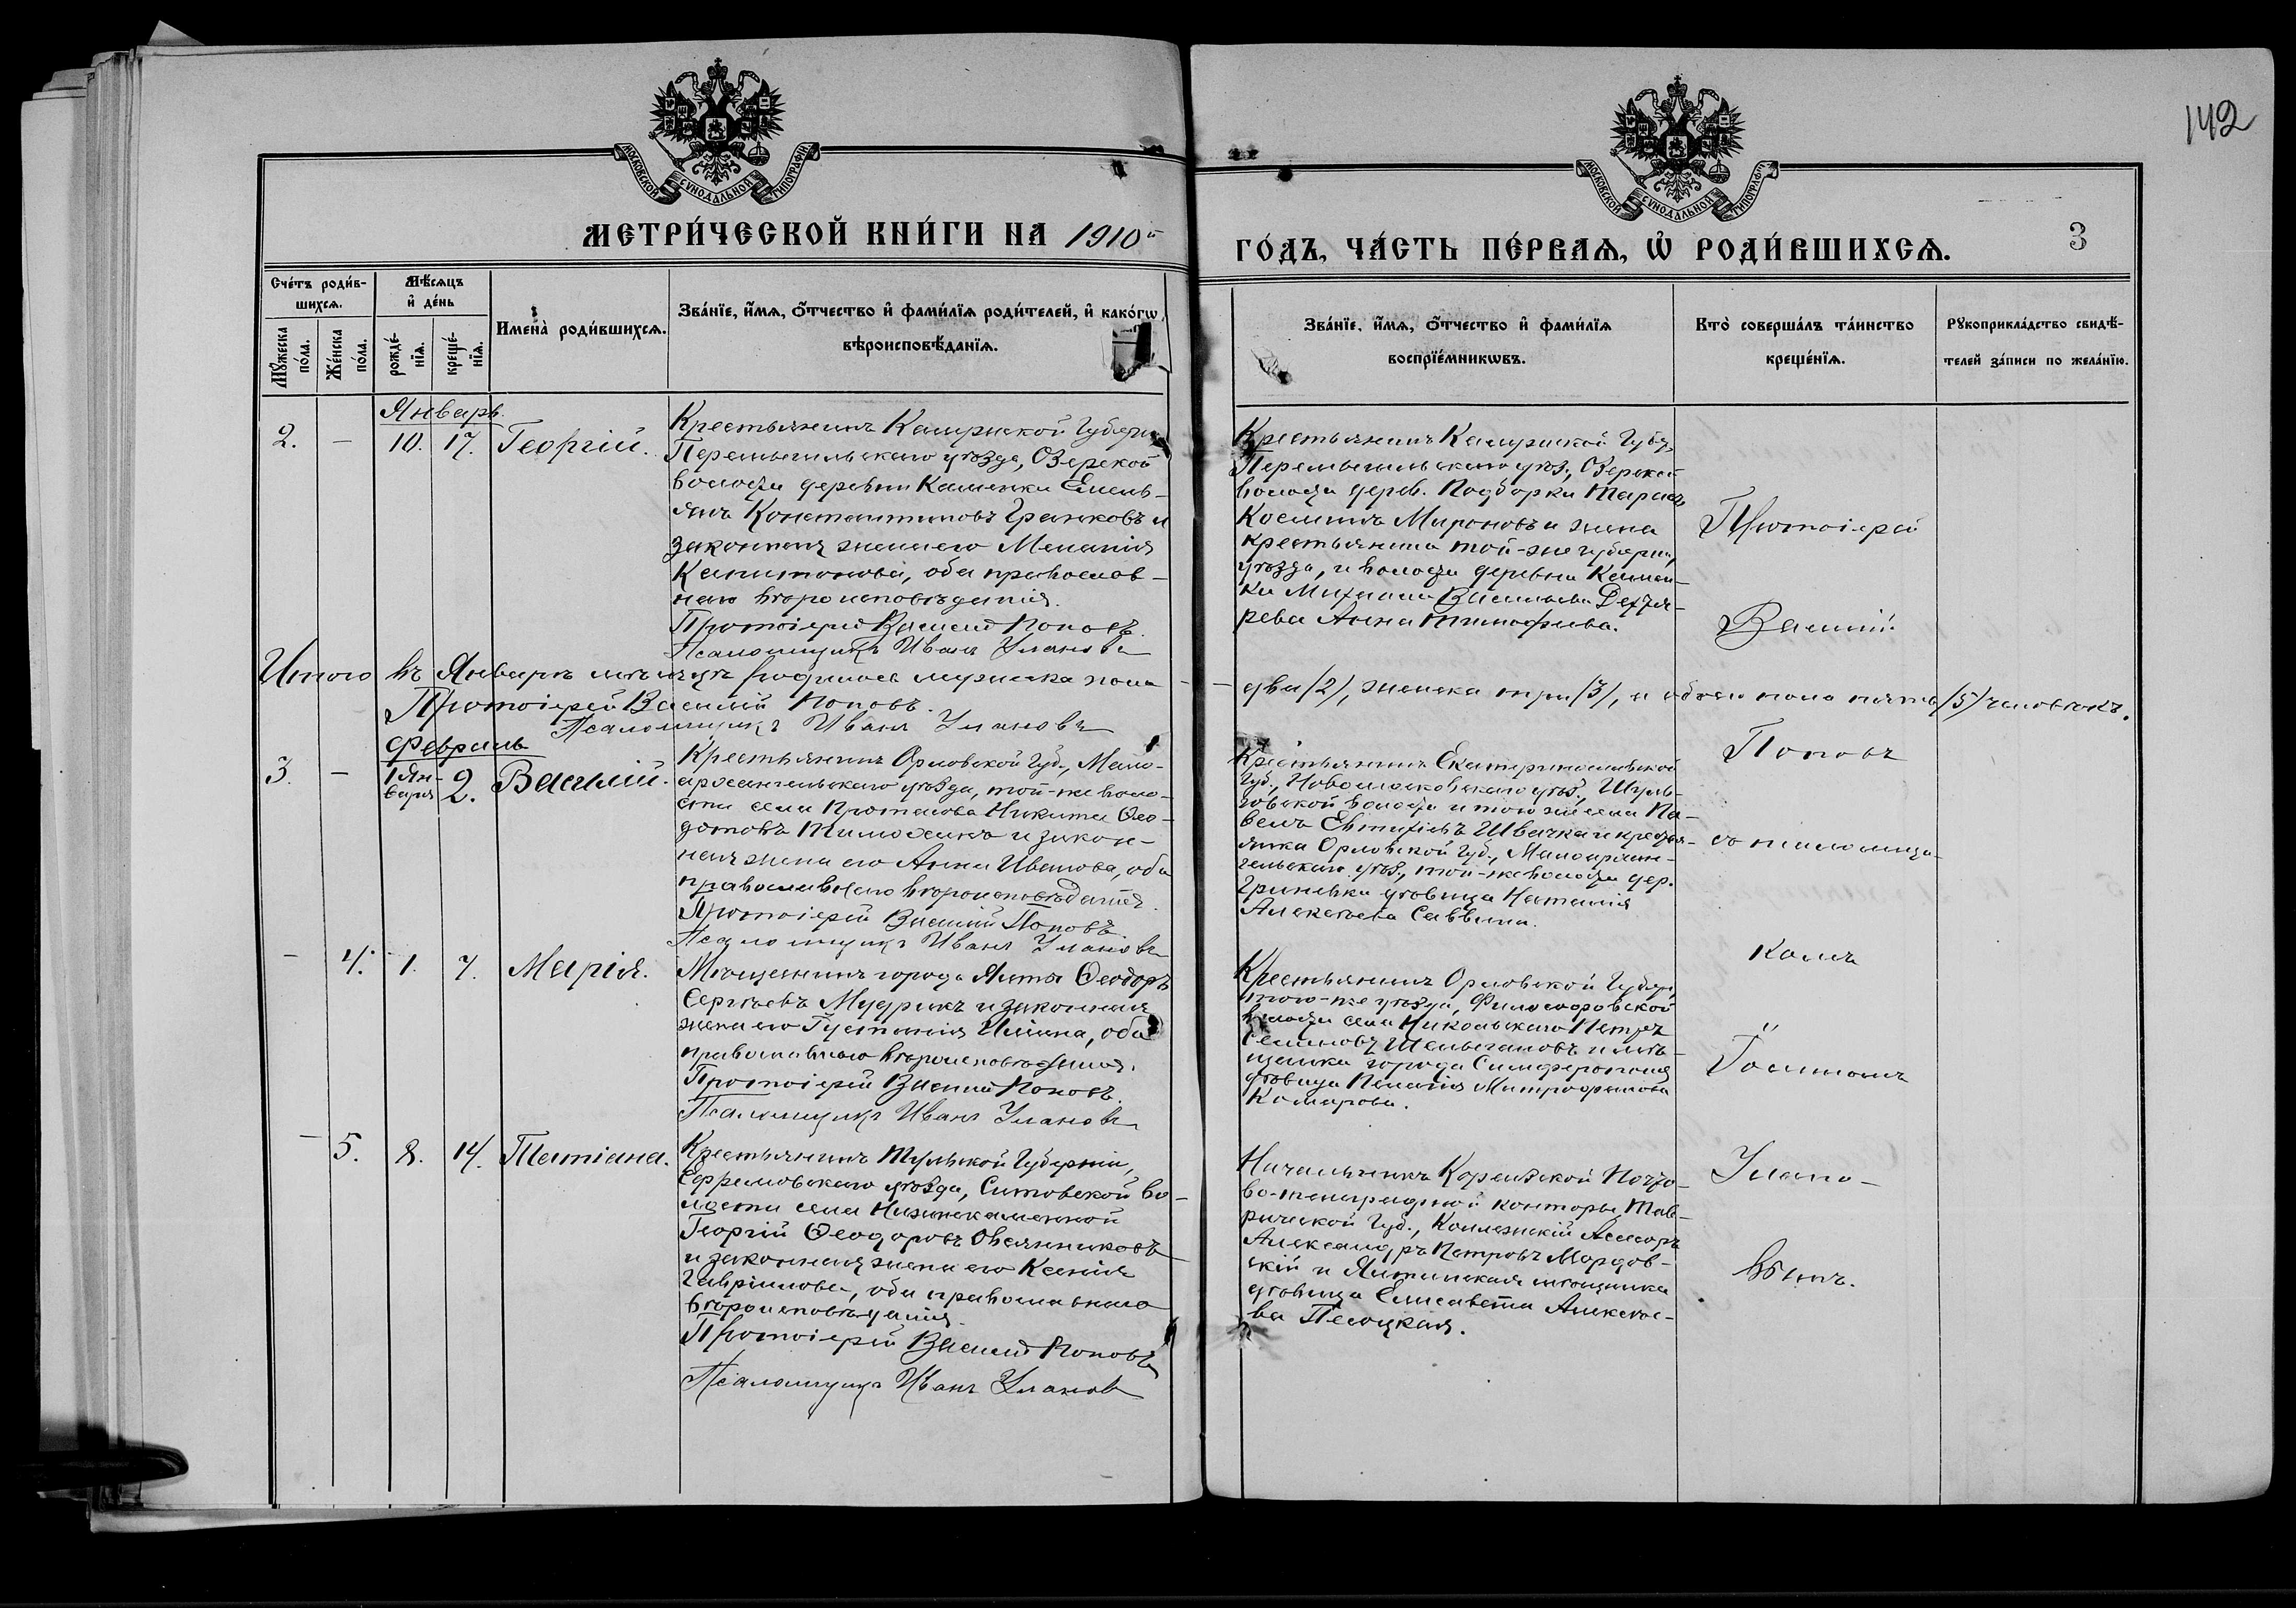 142
МОСКОВСКОЙ СѴНОДАЛЬНОЙ ТИПОГРАФІИ
МОСКОВСКОЙ СѴНОДАЛЬНОЙ ТИПОГРАФІИ
МЕТРИ́ЧЕСКОЙ КНИ́ГИ НА 1910й
ГО́ДЪ, ЧА́СТЬ ПЕ́РВАѦ, Ѡ҆ РОДИ́ВШИХСѦ.
3
Сче́тъ роди́в-
шихсѧ.
Мꙋ́жеска
по́ла.
Же́нска
по́ла.
Мѣ́сѧцъ
и҆ де́нь
рожде́-
нїѧ.
креще́-
нїѧ.
Имена̀ роди́вшихсѧ.
Зва́нїе, и҆́мѧ, ѻ҆́тчество и҆ фами́лїѧ роди́телей, и҆ како́гѡ
вѣроисповѣ́данїѧ.
Зва́нїе, и҆́мѧ, ѻ҆́тчество и҆ фами́лїѧ
воспрїе́мникѡвъ.
Кто̀ соверша́лъ та́инство
креще́нїѧ.
Рꙋкоприкла́дство свидѣ́-
телей за́писи по жела́нїю.
Январь.
2. - 10. 17. Георгій.
Крестьянинъ Калужской Губерніи
Перемышльскаго уѣзда, Озерской
волости деревни Каменки Емель-
янъ Константиновъ Гранковъ и
законная жена его Меланія
Капитонова, оба православ-
наго вѣроисповѣданія.
Протоіерей Василій Поповъ.
Псаломщикъ Иванъ Улановъ
Крестьянинъ Калужской Губер,
Перемышльскаго уѣз., Озерской
волости дерев. Подборки Тарасъ
Косминъ Мироновъ и жена
крестьянина той-же губерніи,
уѣзда, и волости деревни Камен-
ки Михаила Васильева Дехтя-
рева Анна Тимофеева.
Протоіерей
Василій
Итого въ Январѣ мѣсяцѣ родилось мужеска пола - - два (2), женска три (3), а обоего пола пять (5) человѣкъ.
Протоіерей Василій Поповъ.
Псаломщикъ Иванъ Улановъ
Февраль
3. - 1 Ян-
варя 2. Василій.
Крестьянинъ Орловской Губ., Мало-
архангельскаго уѣзда, той-же воло-
сти села Протасова Никита Ѳео-
дотовъ Тимохинъ и закон-
ная жена его Анна Иванова, оба
православнаго вѣроисповѣданія.
Протоіерей Василій Поповъ.
Псаломщикъ Иванъ Улановъ
Крестьянинъ Екатеринославской
Губ., Новомосковскаго уѣз., Шуль-
говской волости и того же села Па-
велъ Евтихіевъ Швачка и кресть-
янка Орловской Губ., Малоархан-
гельскаго уѣз., той-же волости дер.
Гриневки дѣвица Наталія
Алексѣева Саввина.
Поповъ
съ псаломщи-
комъ
- 4. 1. 7. Марія.
Мѣщанинъ города Ялты Ѳеодоръ
Сергѣевъ Мудрикъ и законная
жена его Густинія Ильина, оба
православнаго вѣроисповѣданія.
Протоіерей Василій Поповъ.
Псаломщикъ Иванъ Улановъ
Крестьянинъ Орловской Губерн.
того-же уѣзда, Философовской
волости села Никольскаго Петръ
Семеновъ и мѣ-
щанка города Симферополя
дѣвица Пелагія Митрофанова
Комарова.
Іоанномъ
- 5. 8. 14. Татіана.
Крестьянинъ Тульской Губерніи,
Ефремовскаго уѣзда, Ситовской во-
лости села
Георгій Ѳеодоровъ Овсянниковъ
и законная жена его Ксенія
Гавріилова, оба православнаго
вѣроисповѣданія.
Протоіерей Василій Поповъ
Псаломщикъ Иванъ Улановъ
Начальникъ Кореизской Почто-
во-телеграфной конторы, Тав-
рической Губ., Коллежскій Ассесоръ
Александръ Петровъ Мордов-
скій и Ялтинская мѣщанка
дѣвица Елисавета Алексѣе-
ва Песоцкая.
Улано-
вымъ.